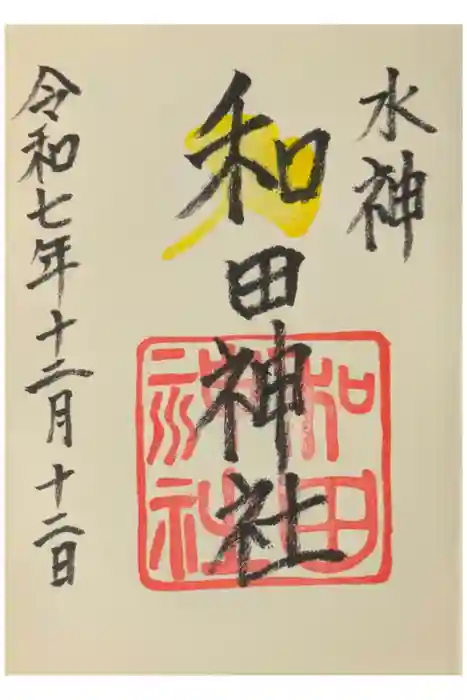 水神
和田神社
令和七年十二月十二日
和田
神社